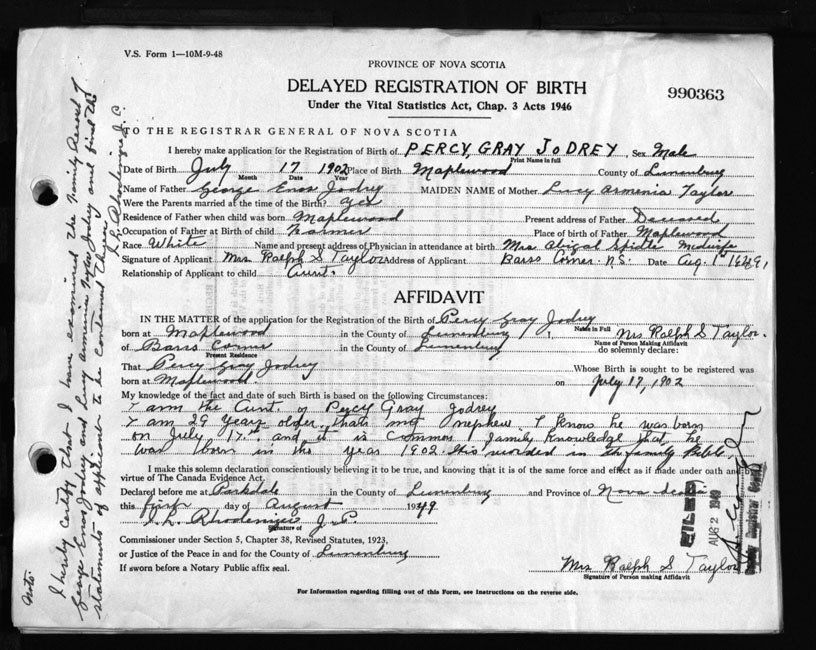 V.S. Form 1—10M-9-48
PROVINCE OF NOVA SCOTIA
DELAYED REGISTRATION OF BIRTH
990363
Under the Vital Statistics Act, Chap. 3 Acts 1946
TO THE REGISTRAR GENERAL OF NOVA SCOTIA
I hereby make application for the Registration of Birth of PERCY, GRAY JODREY, Sex Male
Print Name in full
Date of Birth July 17 1902 Place of Birth Maplewood County of Lunenburg
Month Date Year
Name of Father George Enos Jodrey MAIDEN NAME of Mother Lucy Armenia Taylor
Were the Parents married at the time of the Birth? yes
Residence of Father when child was born Maplewood Present address of Father Deceased
Occupation of Father at Birth of child Farmer Place of birth of Father Maplewood
Race White Name and present address of Physician in attendance at birth Mrs Abigal Spidle Midwife
Signature of Applicant Mrs Ralph S Taylor Address of Applicant Barss Corner N.S. Date Aug. 1st 1949
Relationship of Applicant to child Aunt.
AFFIDAVIT
IN THE MATTER of the application for the Registration of the Birth of Percy Gray Jodrey
Name in Full
born at Maplewood in the County of Lunenburg I, Mrs Ralph S Taylor.
Name of Person Making Affidavit
of Barss Corner in the County of Lunenburg do solemnly declare:
Present Residence
That Percy Gray Jodrey Whose Birth is sought to be registered was
born at Maplewood. on July 17, 1902
My knowledge of the fact and date of such Birth is based on the following Circumstances:
I am the Aunt of Percy Gray Jodrey
I am 29 years older than my nephew. I know he was born
on July 17th and it is common family knowledge that he
was born in the year 1902. this recorded in the family Bible.
I make this solemn declaration conscientiously believing it to be true, and knowing that it is of the same force and effect as if made under oath and by
virtue of The Canada Evidence Act.
Declared before me at Parkdale in the County of Lunenburg and Province of Nova Scotia
this first day of August 1949
L. L. Rhodenizer J.P.
Signature of
Commissioner under Section 5, Chapter 38, Revised Statutes, 1923,
or Justice of the Peace in and for the County of Lunenburg
If sworn before a Notary Public affix seal.
Mrs Ralph S Taylor
Signature of Person making Affidavit
For Information regarding filling out of this Form, see Instructions on the reverse side.
FILED
AUG 2 1949
Note:
I hereby certify that I have examined the Family Record of
George Enos Jodrey and Lucy Armenia Taylor Jodrey and find the
statements of applicant to be contained therein
L. L. Rhodenizer J.P.